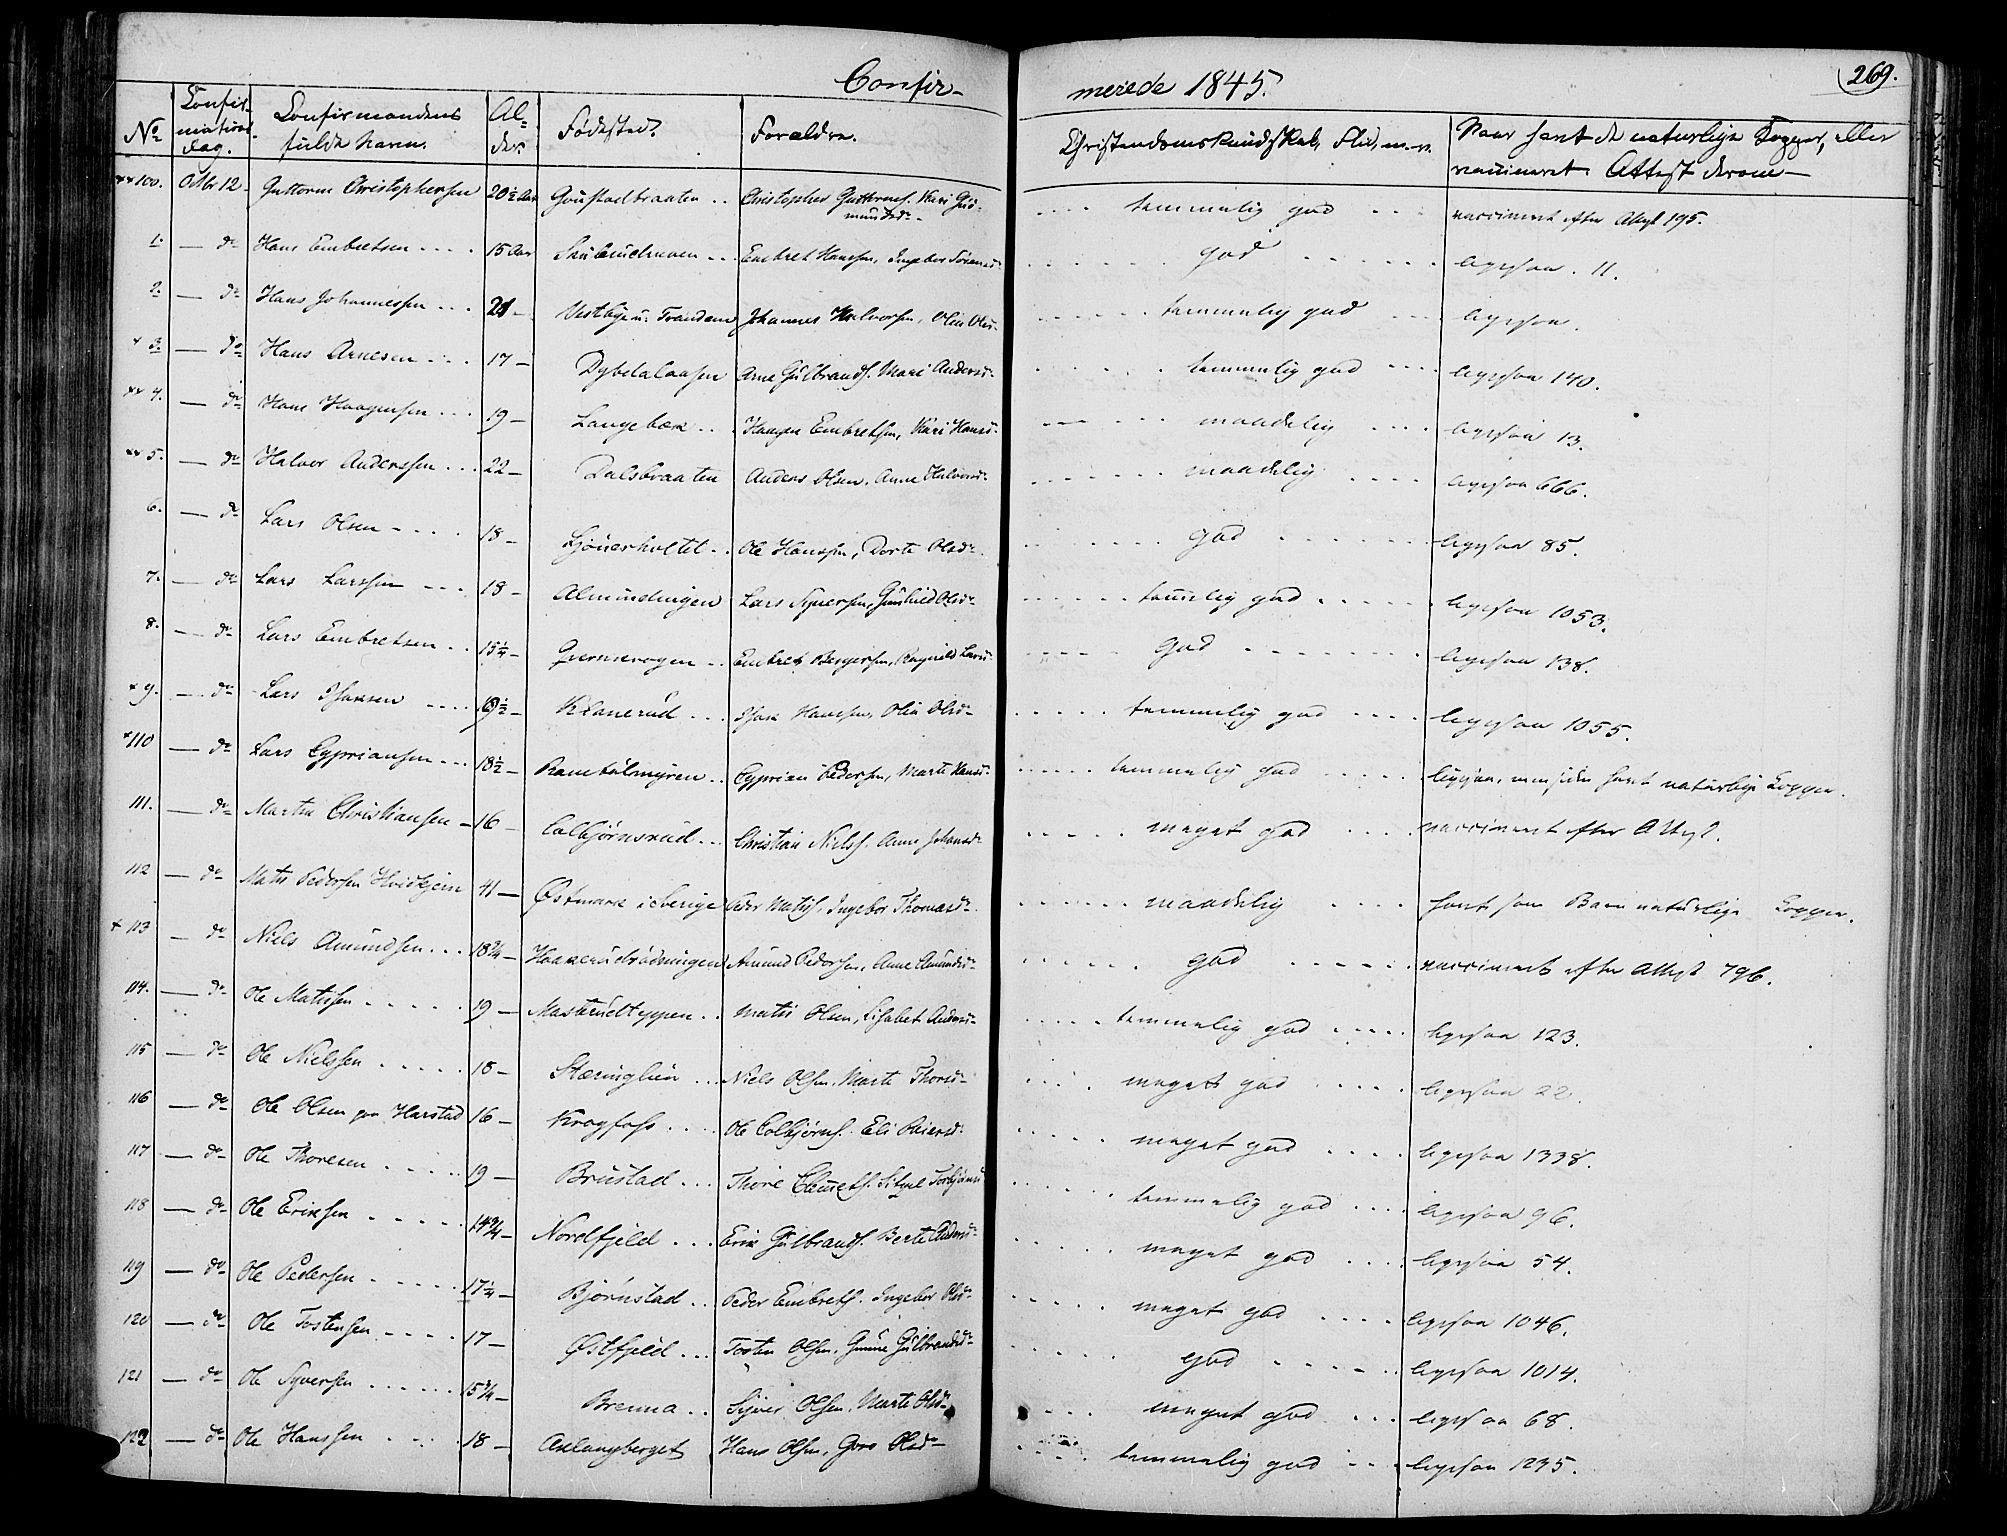 Confir-
merede 1845.
269.
No
Confir-
mations
dag.
Confirmandens
fulde Navn.
Al-
der
Fødested.
Forældre.
Christendomskundskab, Flid, m.v.
Naar havt de naturlige Kopper, eller
vaccineret. Attest derom —
xx 100. Octbr 12. Guttorm Christophersen 20½ Aar Goustadbraaten .. Christopher Guttormss. Kari Gud-
mundsdr
temmelig god vaccineret efter Attest 195.
1. — do Hans Embretsen .... 15 Aar Embret Hansen, Ingebor
god ligesaa. 11.
2. — do Hans Johannessen ... 21 — Johannes Halvorsen, Olia Olsd.
temmelig god ligesaa.
x 3. — do Hans Arnesen 17 — Arne Gulbrands. Mari Andersd.
temmelig god ligesaa 140.
xx 4. — do Hans Haagensen ... 19 — Langebæk ... Haagen Embretsen, Kari Hansd.
maadelig ligesaa 13.
xx 5. — do Halvor Anderssen ... 22 — Dalsbraaten Anders Olsen, Anne Halvorsd.
maadelig ligesaa 666.
6. — do Lars Olsen .... 18 — Ljönerholtet .. Ole Hanssen, Dorte Olsdr
god ligesaa 85.
7. — do Lars Larssen ... 18 — Almindingen Lars Syversen, Gunhild Olsdr
temmelig god ligesaa 1053.
8. — do Lars Embretsen .. 15¼ — Embret Bergersen, Ragnild Larsd.
god ligesaa 138.
x 9. — do Lars Isaksen .... 19½ — Klanerud ... Isak Hanssen, Olia Olsdr
temmelig god ligesaa 1055.
x 110 — do Lars Cyprianssen ... 18½ — Cyprian Pedersen, Marte Hansd.
temmelig god ligesaa, men siden havt naturlige Kopper.
111. — do Martin Christiansen — 16 — Colbjørnsrud ... Christian Nielss. Anne Johansd.
meget god vaccineret efter Attest.
112 — do Mats Pedersen 41 — Østmark i Sverige Peder Matss. Ingebor Thomasdr
maadelig havt som Barn naturlige Kopper.
x 113 — do Niels Amundsen ... 18¾ — Amund Pedersen, Anne Amundsd.
god vaccineret efter Attest 796.
114. — do Ole Matssen ..... 19 — Masterudteppen .. Mats Olsen, Lisabet Andersd.
temmelig god ligesaa 123.
115 — do Ole Nielssen ..... 18 — Niels Olsen. Marte Thorsd.
meget god ligesaa 22.
116 — do Ole Olsen paa Harstad 16 — Krogfoss .... Ole Colbjørns. Eli
meget god ligesaa 1338.
117 — do Ole Thoresen .... 19 — Brustad ... Thore
temmelig god ligesaa 96.
118 — do Ole Eriksen ..... 14¾ — Nordfjeld ... Erik Gulbrands. Berte Andersd.
meget god ligesaa 54.
119 — do Ole Pedersen ..... 17¼ — Bjørnstad .. Peder Embrets. Ingebor Olsdr
meget god ligesaa 1046.
120 — do Ole Tostensen .... 17 — Østfjeld ... Tosten Olsen. Gulbrandsdr
god ligesaa 1014.
121 — do Ole Syversen ...... 15¾ — Brenna .. Syver Olsen. Marte Olsdr
meget god ligesaa 68.
122 — do Ole Hanssen ..... 18 — Aslangberget Hans Olsen, Goro Olsdr
temmelig god ligesaa 1295.